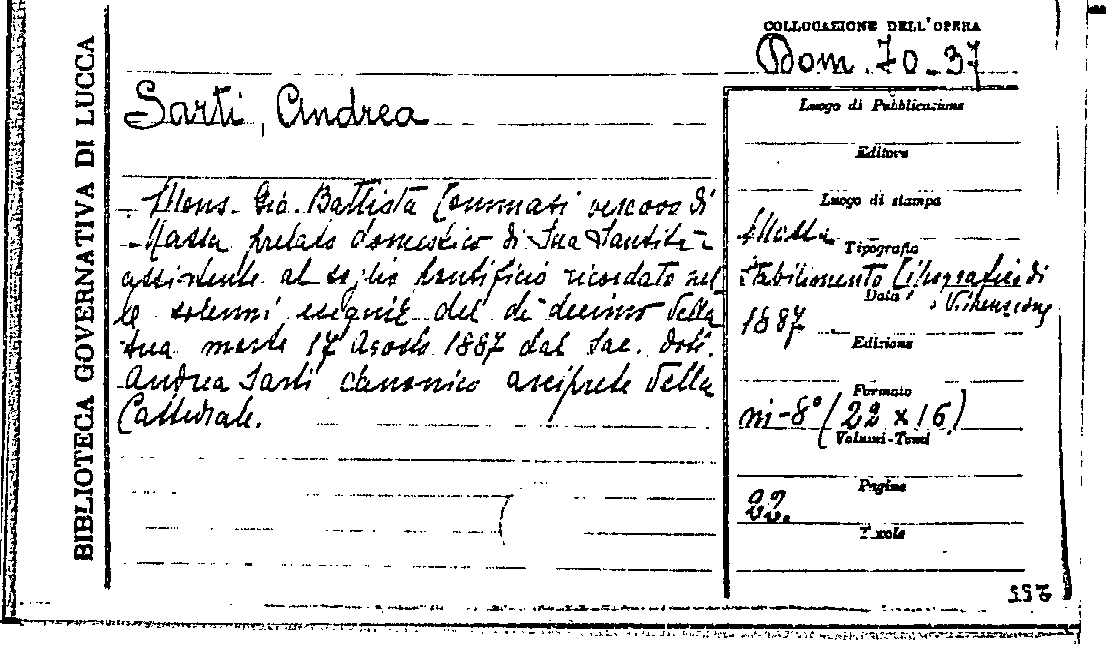 BIBLIOTECA GOVERNATIVA DI LUCCA
COLLOCAZIONE DELL'OPERA
Dom. 70-37
Sarti, Andrea
Mons. Gio. Battista Tommasi vescovo di
Massa prelato domestico di Sua Santità
assistente al soglio pontificio ricordato nel
le solenni esequie del dì decimo della
sua morte 17 Agosto 1887 dal Sac. Dott.
Andrea Sarti canonico arciprete della
Cattedrale.
Luogo di Pubblicazione
Editore
Luogo di stampa
Massa
Tipografia
Stabilimento di
Data
1887
Edizione
Formato
in-8° (22 x 16)
Volumi-Tomi
Pagine
22.
Tavole